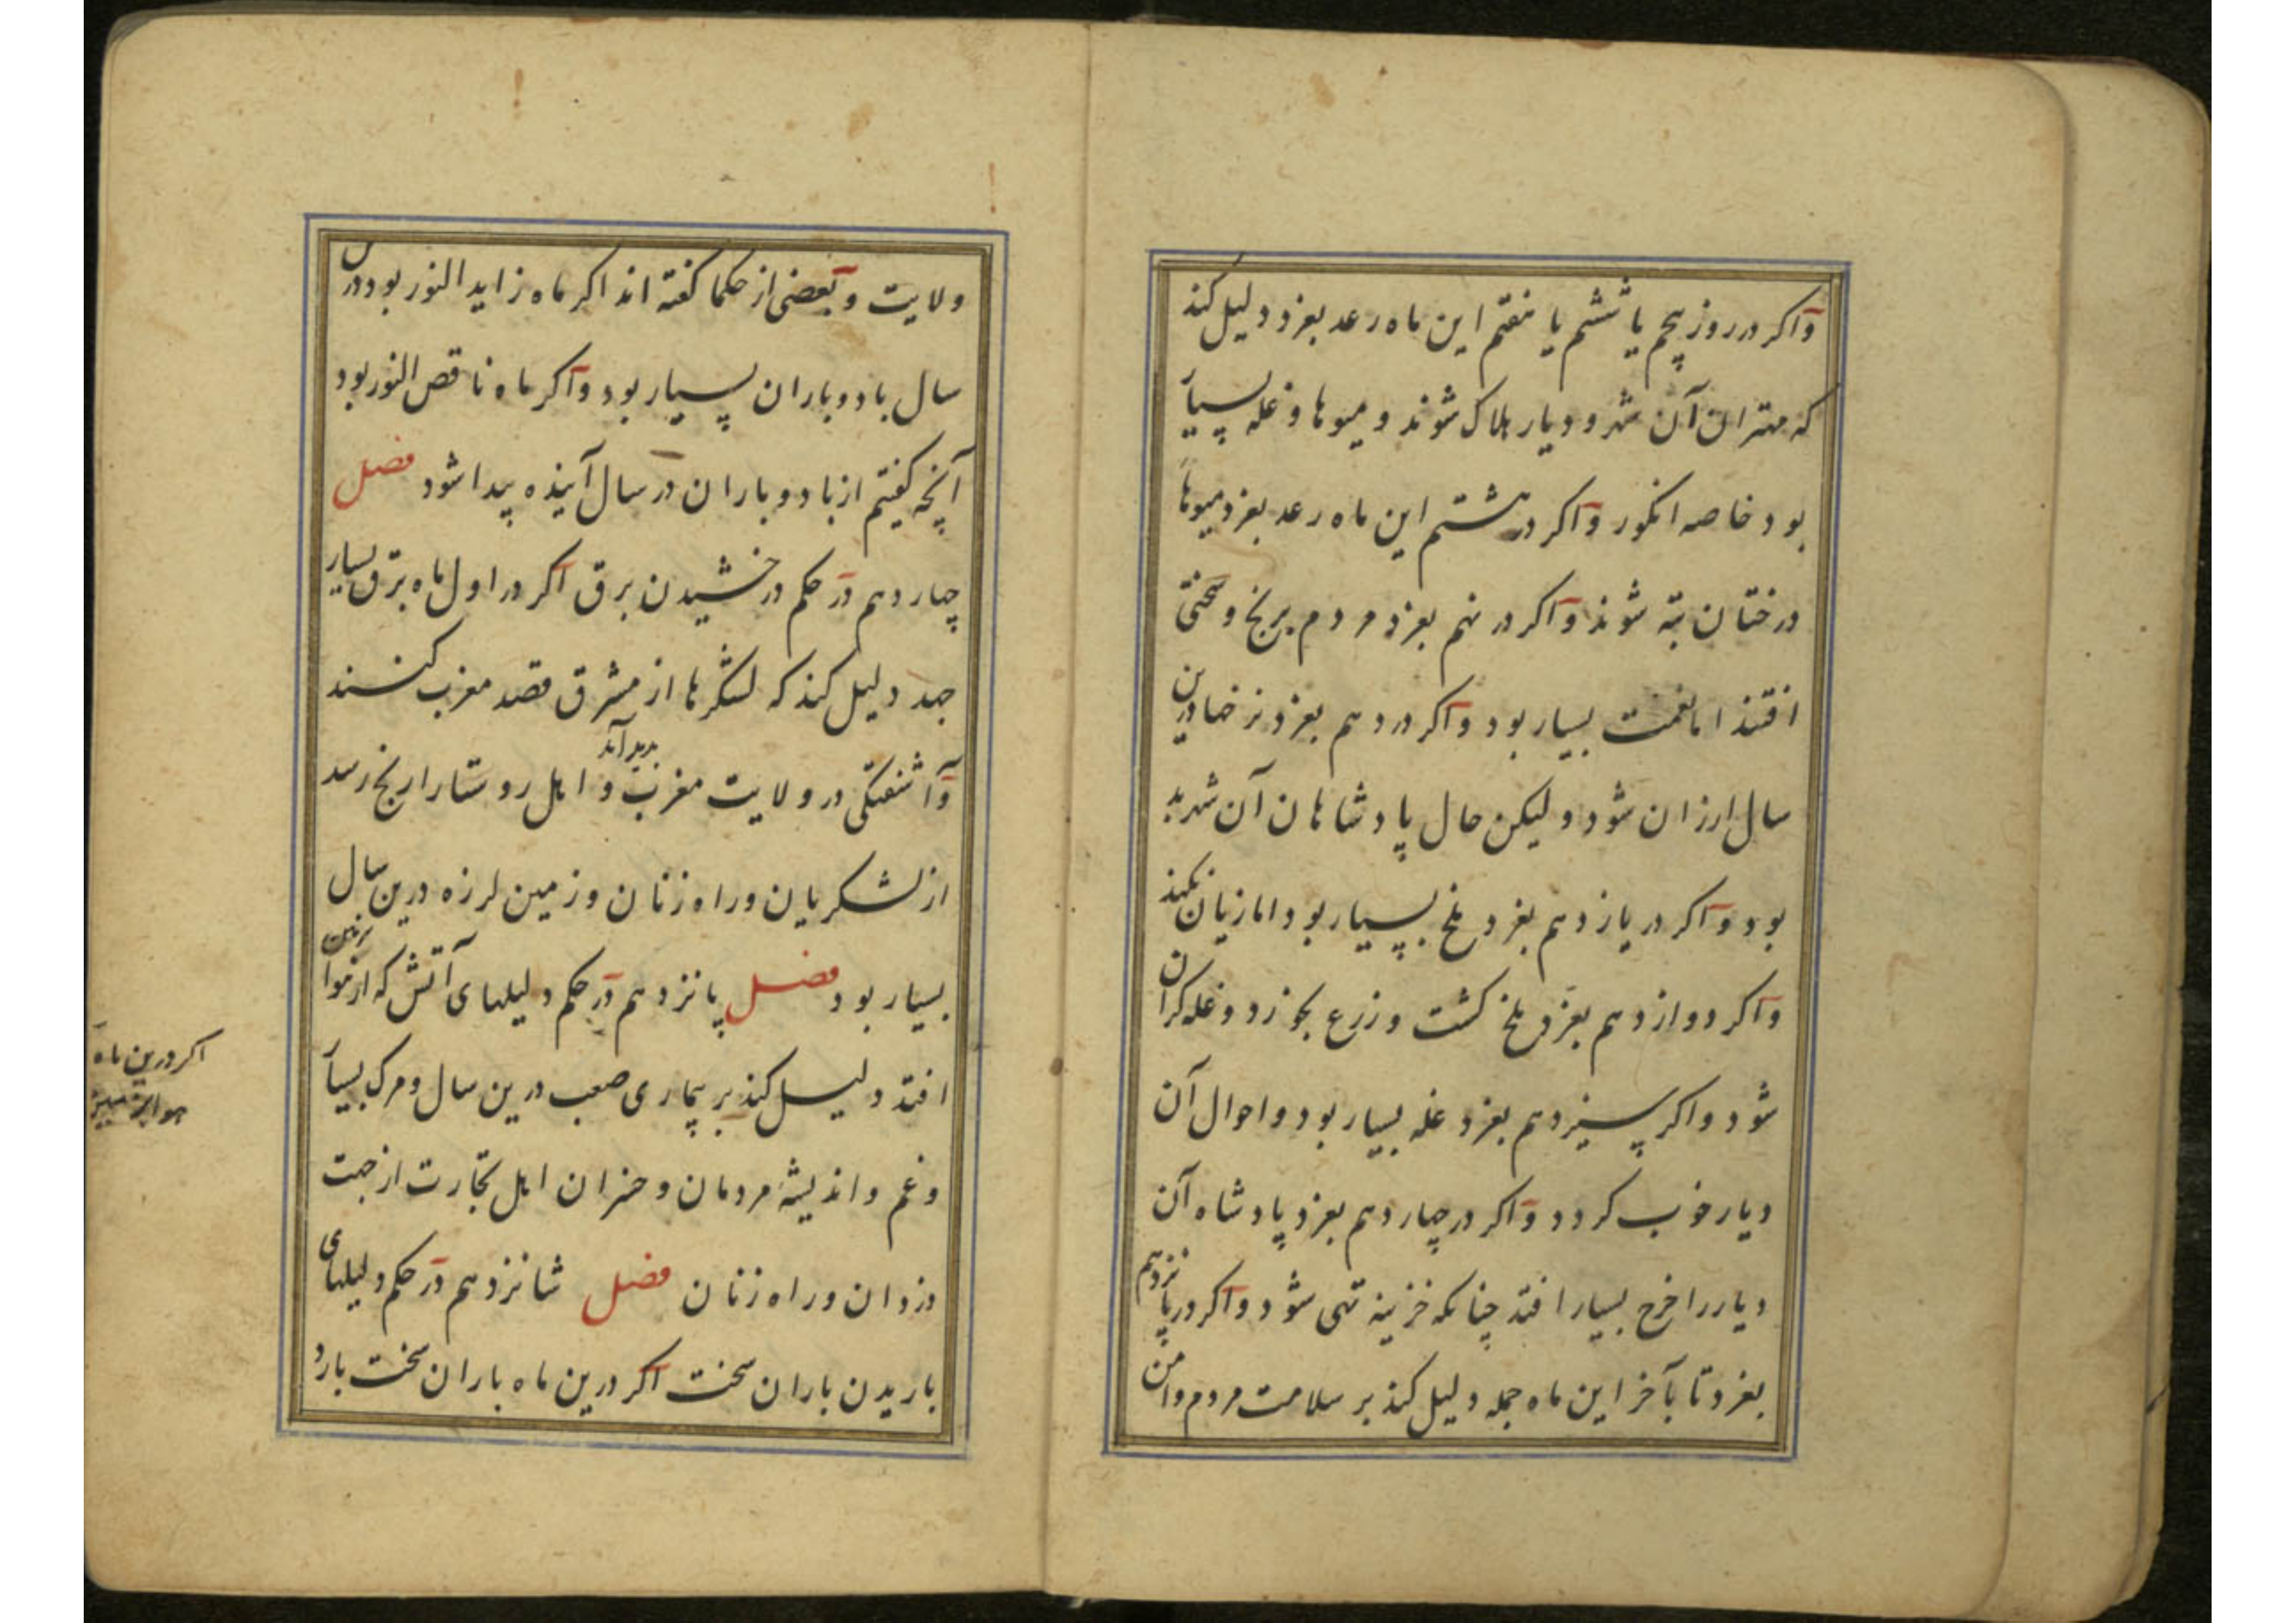 واکر در روز پنجم یا ششم یا هفتم این ماه رعد بغرد دلیل کند
که مهتران آن شهر و دیار هلاک شوند و میوها و غله بسیار
بود خاصه انکور واکر در هشتم این ماه رعد بغرد میوهاء
درختان تبه شوند واکر در نهم بغرد مردم برنج و سختی
افتند اما نعمت بسیار بود واکر در دهم بغرد نرخها درین
سال ارزان شود و لیکن حال پادشاهان آن شهر بد
بود واکر در یازدهم بغرد ملخ بسیار بود اما زیان نکند
واکر دوازدهم بغرد ملخ کشت و زرع بخورد و غله کران
شود واکر سیزدهم بغرد غله بسیار بود و احوال آن
دیار خوب کردد واکر در چهاردهم بغرد پادشاه آن
دیار را خرج بسیار افتد چنانکه خزینه تهی شود واکر در پانزدهم
بغرد تا بآخر این ماه جمله دلیل کند بر سلامت مردم و امن
ولایت و بعضی از حکما کفته اند اکر ماه زاید النور بود درین
سال باد و باران بسیار بود واکر ماه ناقص النور بود
آنچه کفتیم از باد و باران در سال آینده پیدا شود فصل
چهاردهم در حکم درخشیدن برق اکر در اول ماه برق بسیار
جهد دلیل کند که لشکرها از مشرق قصد مغرب کنند
وآشفتکی در ولایت مغرب پدید آید و اهل روستا را رنج رسد
از لشکریان و راه زنان و زمین لرزه درین سال
بسیار بود فصل پانزدهم در حکم دلیلهای آتش که از هوا بزمین
افتد دلیل کند بر بیماری صعب درین سال و مرک بسیار
و غم و اندیشه مردمان و خسران اهل تجارت از جهت
دزدان و راه زنان فصل شانزدهم در حکم دلیلهای
باریدن باران سخت اکر درین ماه باران سخت بارد
اکر درین ماه